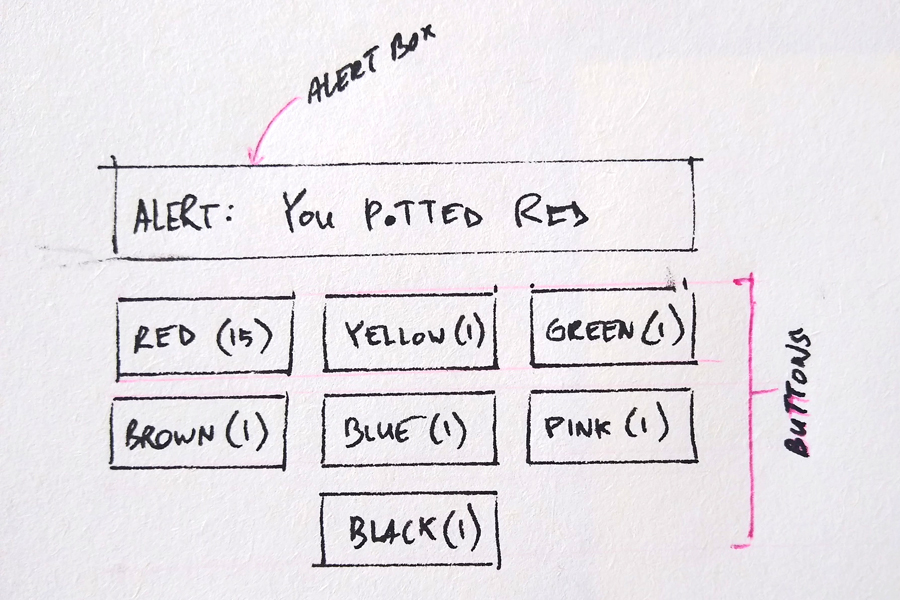 ALERT BOX
ALERT: You POTTED RED
RED (15)
YELLOW (1)
GREEN (1)
BROWN (1)
BLUE (1)
PINK (1)
BLACK (1)
BUTTONS